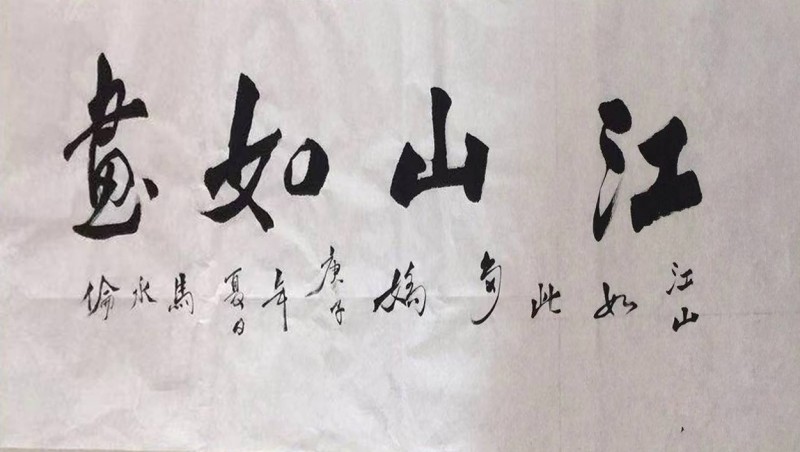 江山如畫
江山如此多嬌 庚子年夏日 馬永倫